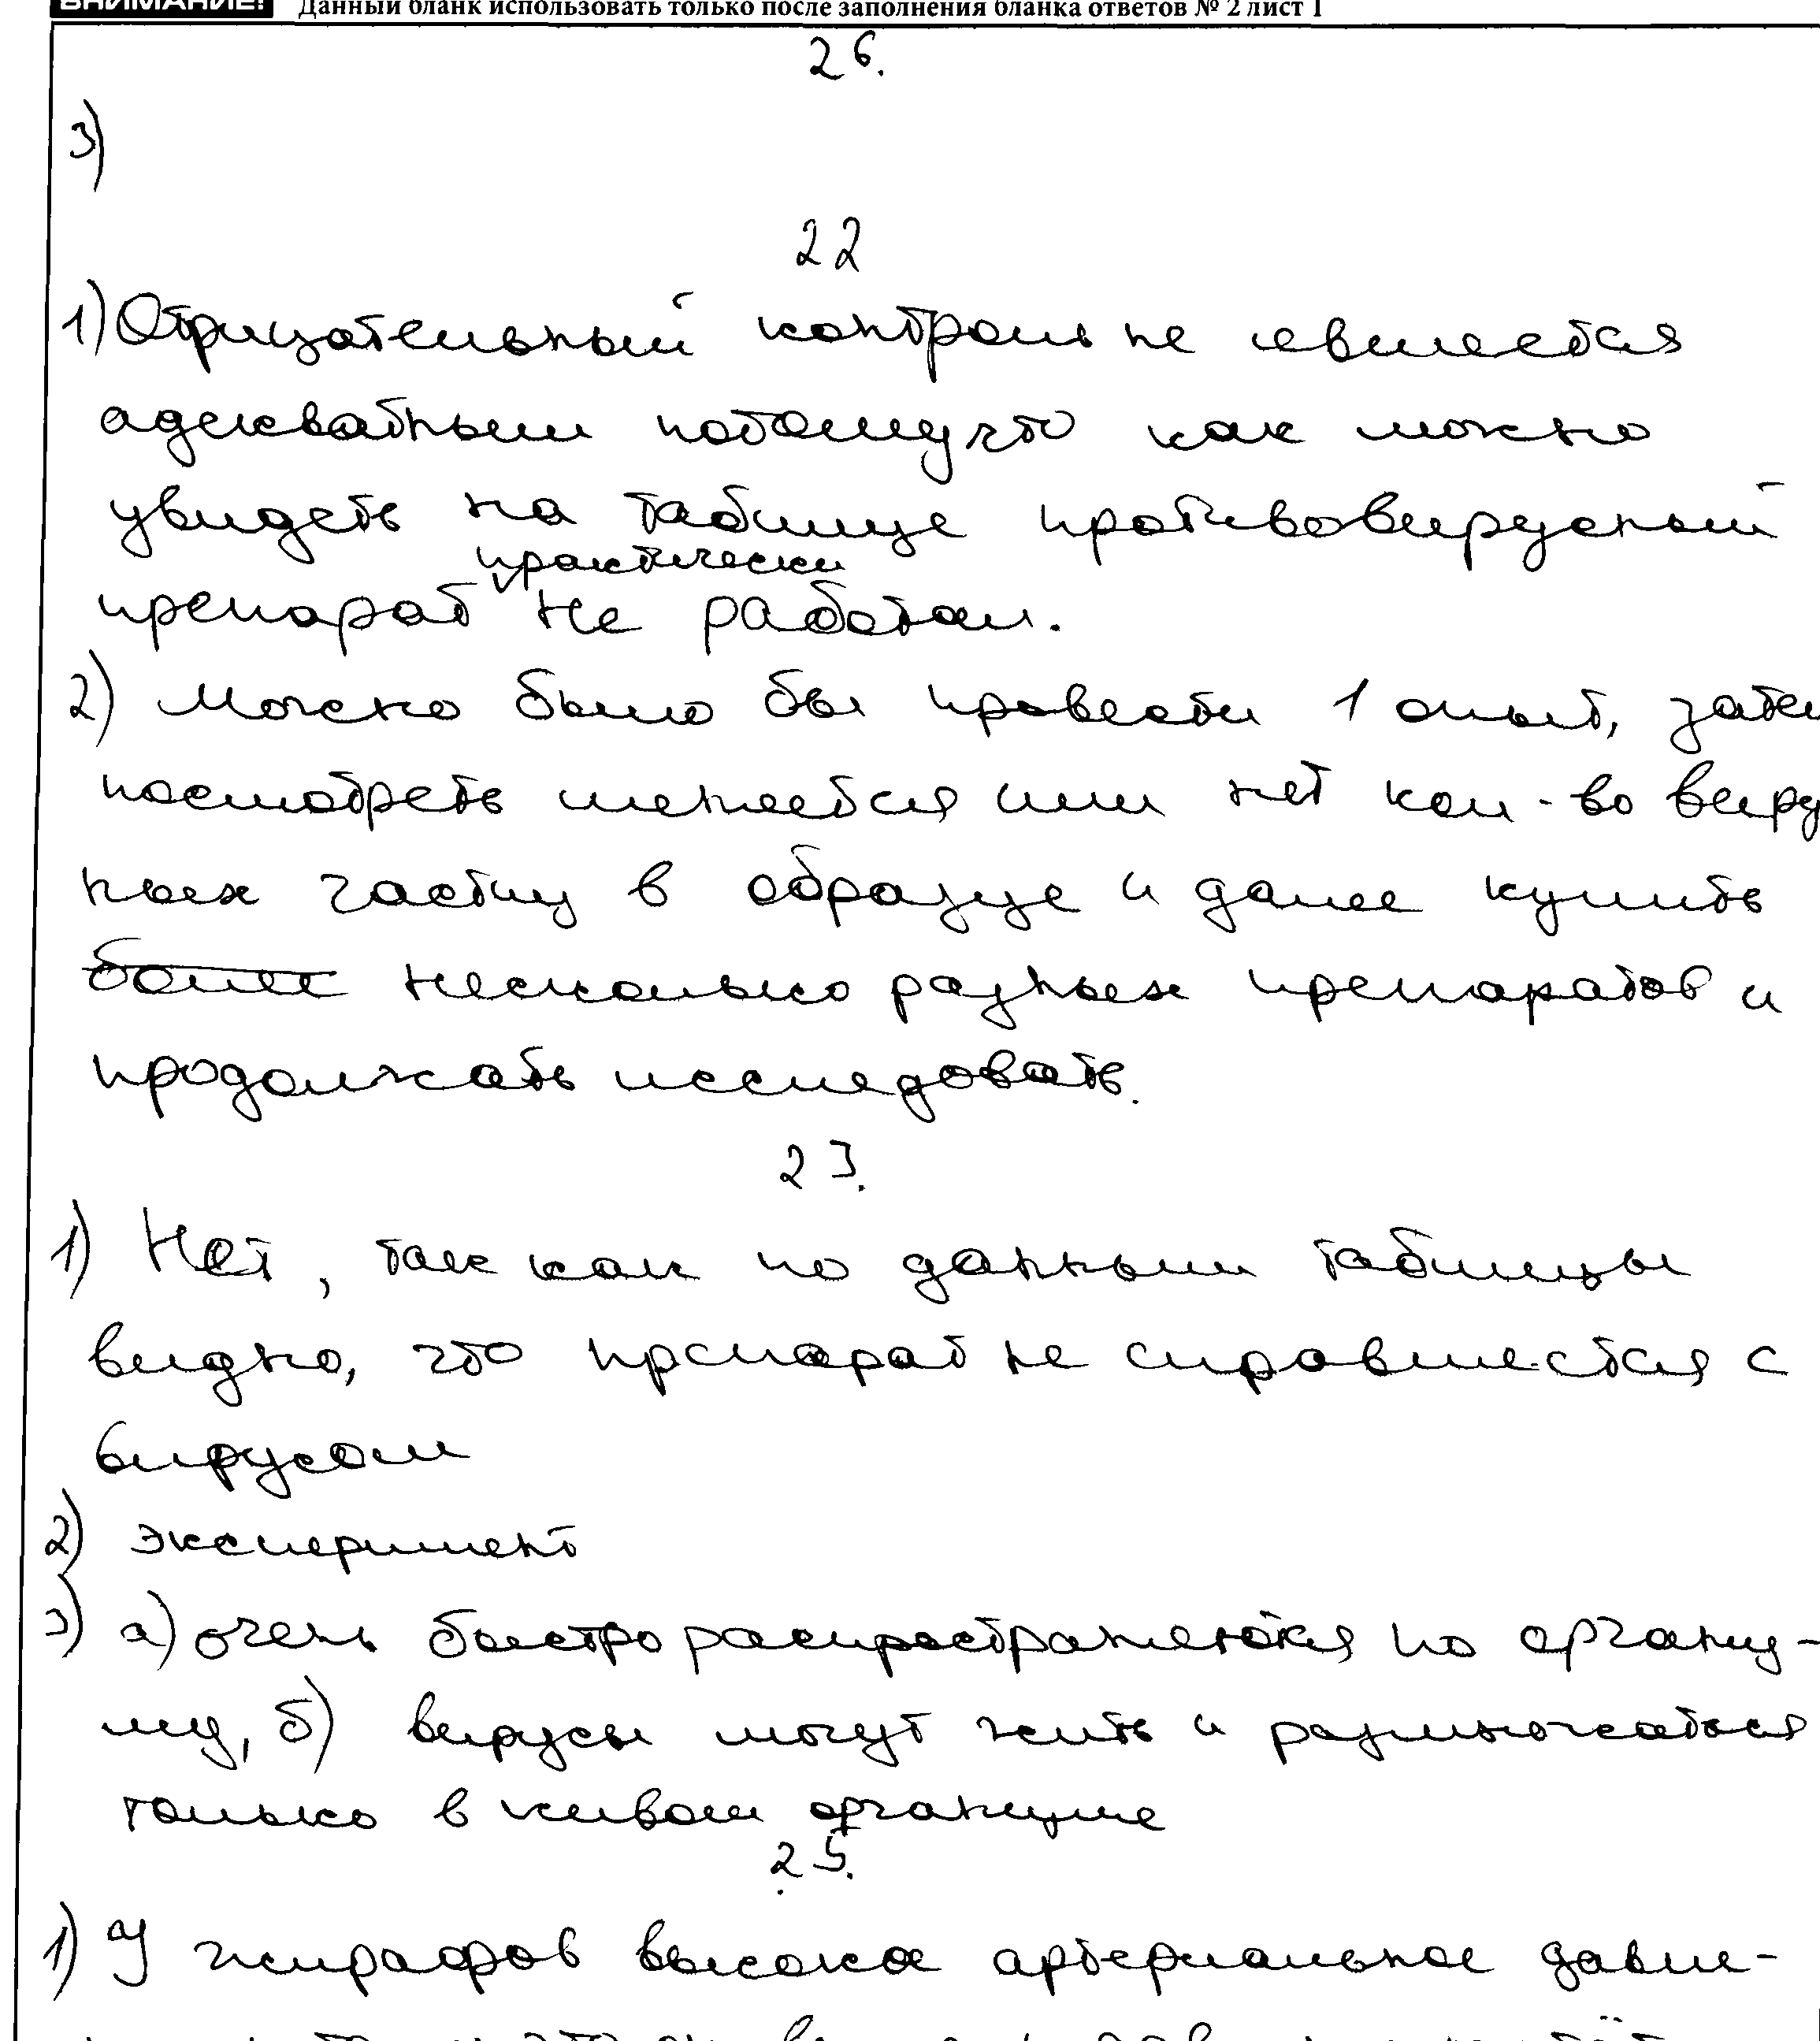 ВНИМАНИЕ! Данный бланк использовать только после заполнения бланка ответов № 2 лист 1
26.
3)
22
1) Отрицательный контроль не является
адекватным потому что как можно
увидеть на таблице противовирусный
практически
препарат не работал.
2) Можно было бы провести 1 опыт, затем
посмотреть меняется или нет кол-во виру
ных частиц в образце и далее купить
более несколько разных препаратов и
продолжать исследовать.
23.
1) Нет, так как по данным таблицы
видно, что препарат не справляется с
вирусом
2) эксперимент
3) а) очень быстро распространяются по организ-
му, б) вирусы могут жить и размножаться
только в живом организме
25.
1) У жирафов высокое артериальное давле-